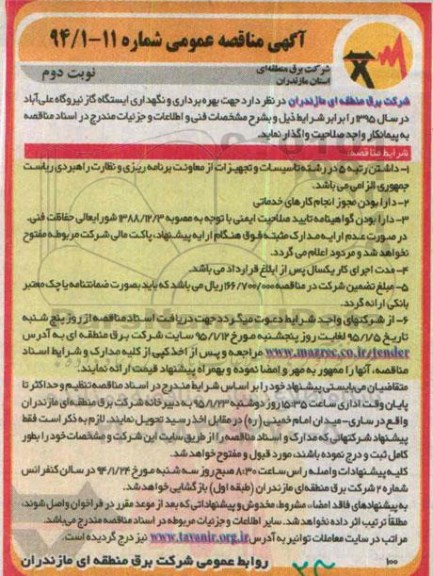 آگهی مناقصه عمومی شماره ۱۱-۹۴/۱
شرکت برق منطقه‌ای
استان مازندران
نوبت دوم
شرکت برق منطقه ای مازندران در نظر دارد جهت بهره برداری و نگهداری ایستگاه گاز نیروگاه علی‌آباد
در سال ۱۳۹۵ را برابر شرایط ذیل و بشرح مشخصات فنی و اطلاعات و جزئیات مندرج در اسناد مناقصه
به پیمانکار واجد صلاحیت واگذار نماید.
شرایط مناقصه:
۱- داشتن رتبه ۵ در رشته تاسیسات و تجهیزات از معاونت برنامه ریزی و نظارت راهبردی ریاست
جمهوری الزامی می باشد.
۲- دارا بودن مجوز انجام کارهای خدماتی
۳- دارا بودن گواهینامه تایید صلاحیت ایمنی با توجه به مصوبه ۱۳۸۸/۱۲/۳ شورایعالی حفاظت فنی.
در صورت عدم ارایه مدارک مثبته فوق هنگام ارایه پیشنهاد، پاکت مالی شرکت مربوطه مفتوح
نخواهد شد و مردود اعلام می گردد.
۴- مدت اجرای کار یکسال پس از ابلاغ قرارداد می باشد.
۵- مبلغ تضمین شرکت در مناقصه ۱۶۶/۷۰۰/۰۰۰ ریال می باشد که باید بصورت ضمانتنامه یا چک معتبر
بانکی ارائه گردد.
۶- از شرکتهای واجد شرایط دعوت میگردد جهت دریافت اسناد مناقصه از روز پنج شنبه
تاریخ ۹۵/۱/۵ لغایت روز پنجشنبه مورخ ۹۵/۱/۱۲ سایت شرکت برق منطقه ای به آدرس
www.mazrec.co.ir/tender مراجعه و پس از اخذ کپی از کلیه مدارک و شرایط اسناد
مناقصه، آنها را ممهور به مهر و امضا نموده و بهمراه پیشنهاد قیمت ارائه نمایند.
متقاضیان می‌بایستی پیشنهاد خود را بر اساس شرایط مندرج در اسناد مناقصه تنظیم و حداکثر تا
پایان وقت اداری ساعت ۱۵:۳۵ روز دوشنبه ۹۵/۱/۲۳ به دبیرخانه شرکت برق منطقه‌ای مازندران
واقع در ساری- میدان امام خمینی (ره) در مقابل اخذ رسید تحویل نمایند. لازم به ذکر است فقط
پیشنهاد شرکتهائی که مدارک و اسناد مناقصه را از طریق سایت این شرکت و مشخصات خود را بطور
کامل ثبت و درج نموده باشند، مورد قبول و مفتوح خواهد شد.
کلیه پیشنهادات واصله راس ساعت ۸:۳۰ صبح روز سه شنبه مورخ ۹۴/۱/۲۴ در سالن کنفرانس
شماره ۲ شرکت برق منطقه‌ای مازندران (طبقه اول) بازگشایی خواهد شد.
به پیشنهادهای فاقد امضاء، مشروط، مخدوش و پیشنهاداتی که بعد از موعد مقرر در فراخوان واصل شوند،
مطلقاً ترتیب اثر داده نخواهد شد. سایر اطلاعات و جزئیات مربوطه در اسناد مناقصه مندرج می‌باشد.
مراتب در سایت معاملات توانیر به آدرس www.tavanir.org.ir نیز درج گردیده است.
روابط عمومی شرکت برق منطقه ای مازندران